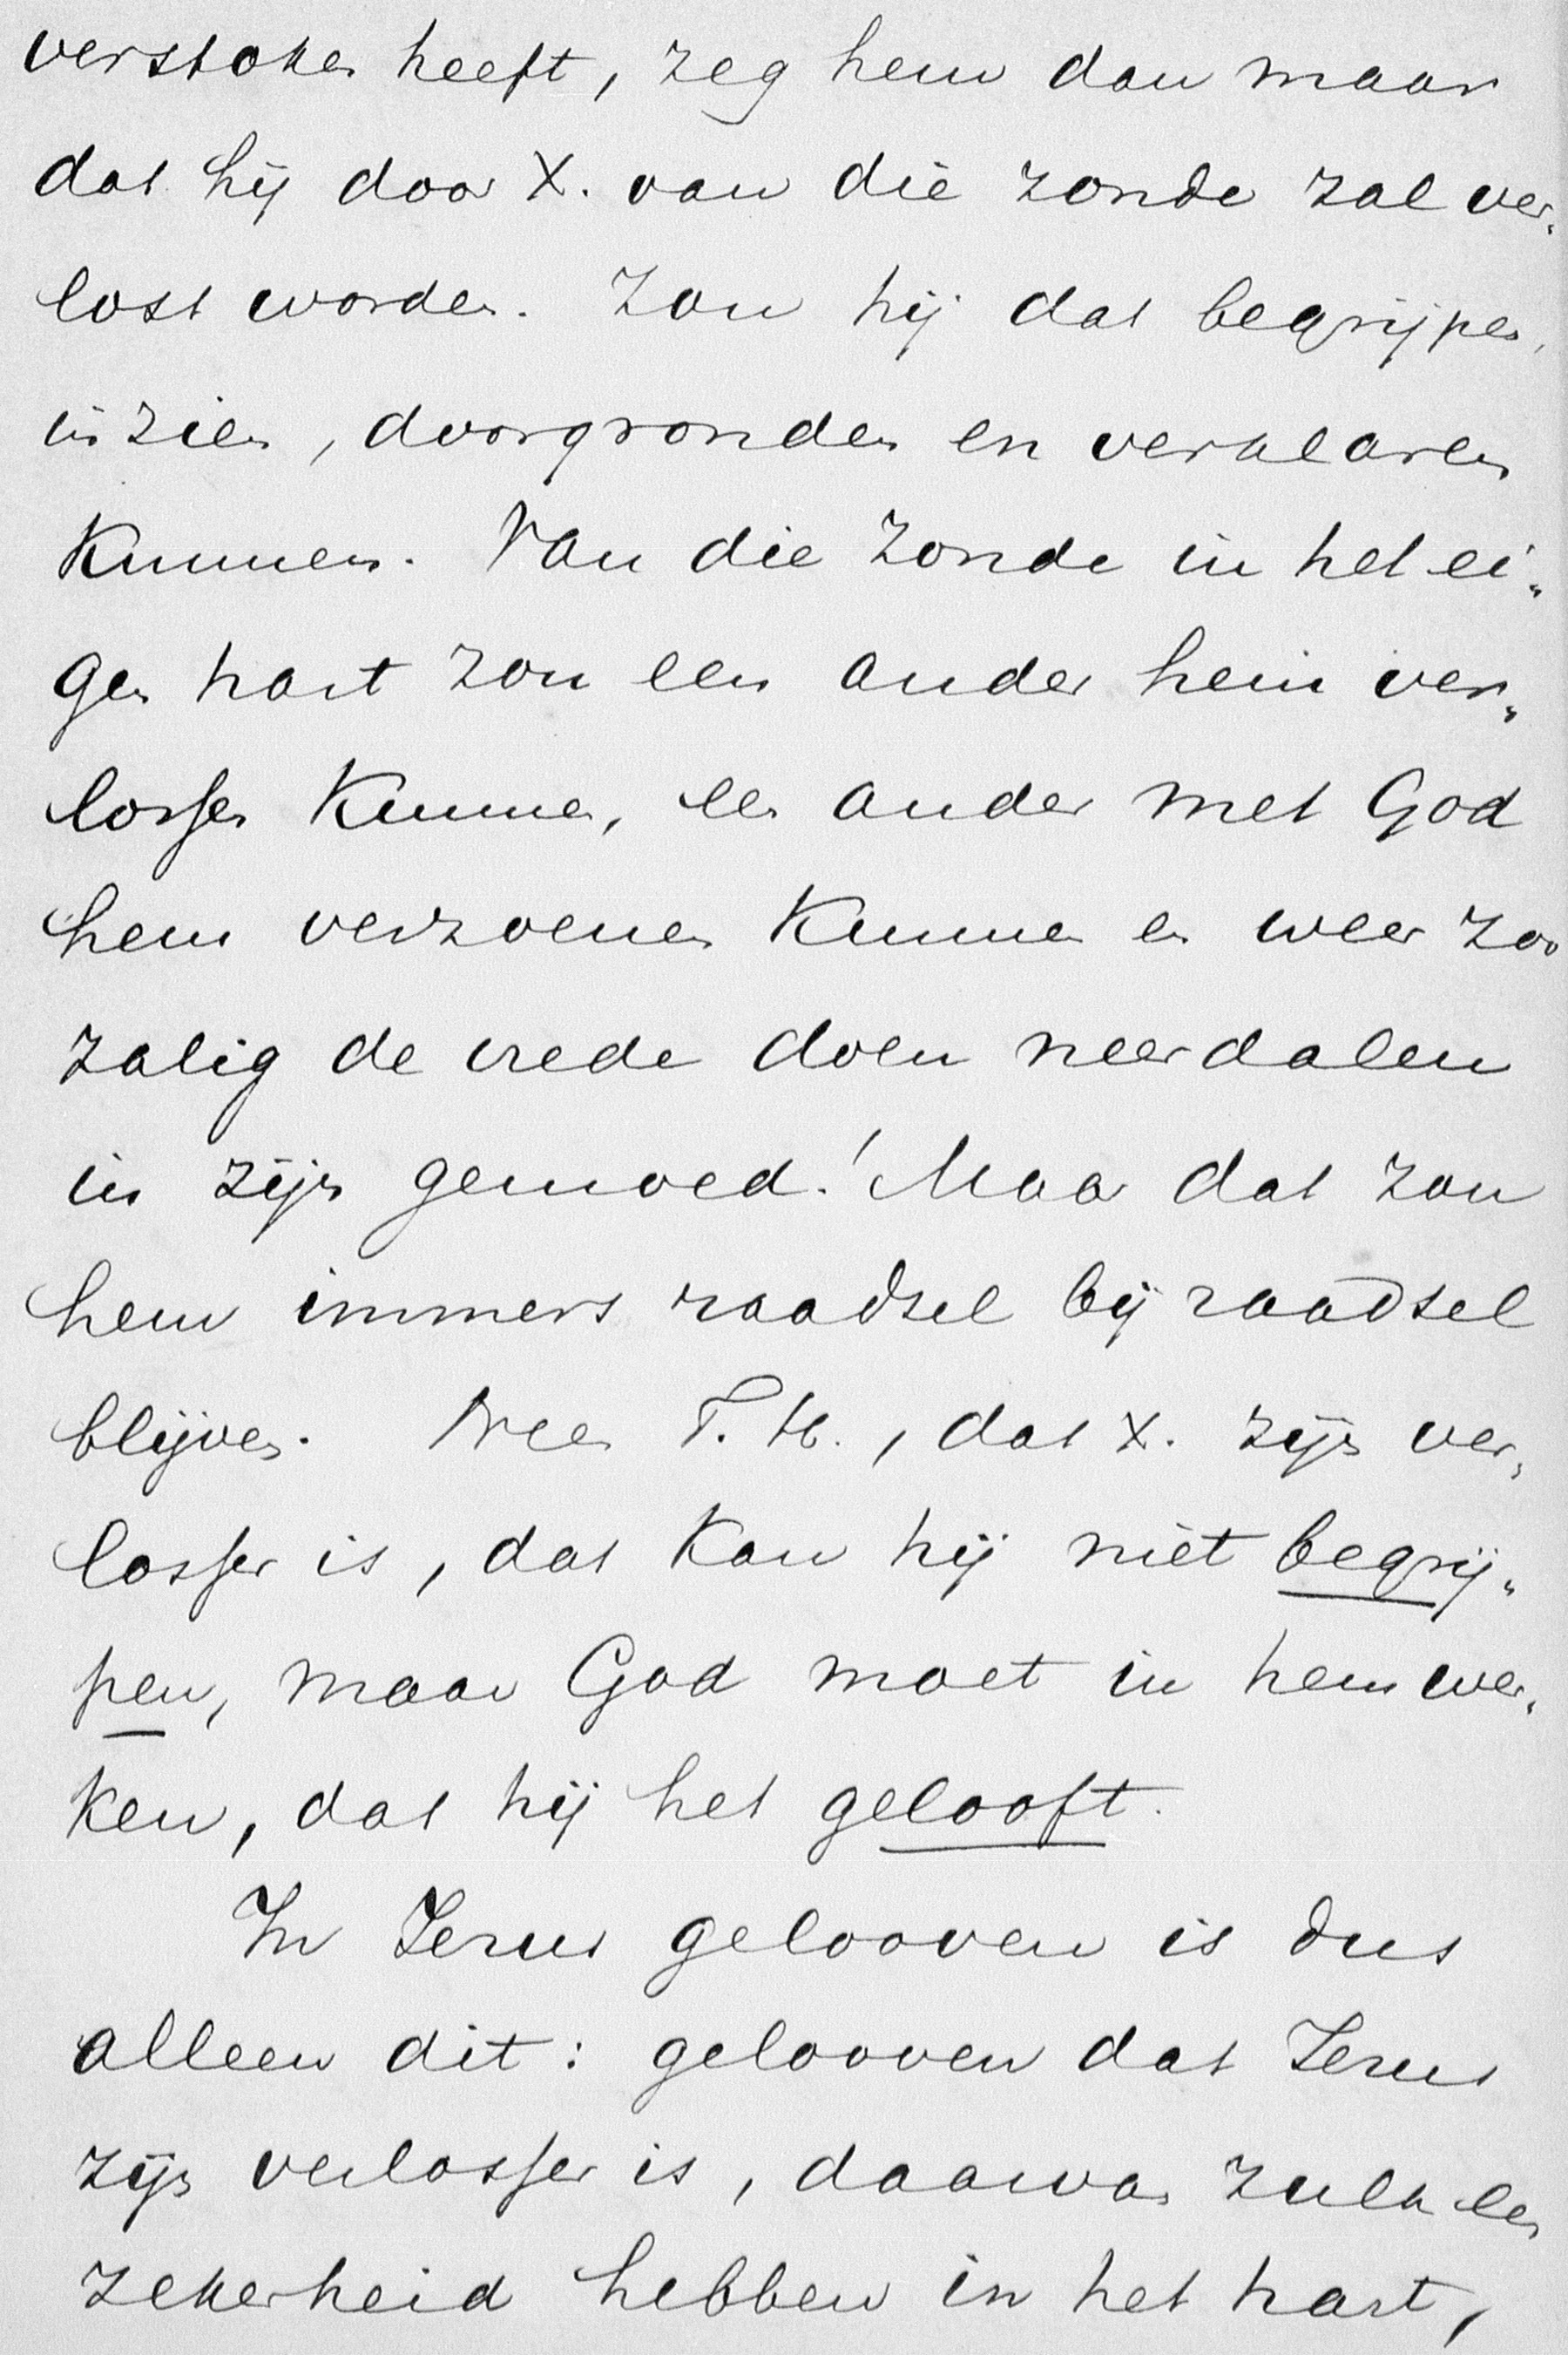 verstoken heeft, zeg hem dan maar
dat hij door X. van die zonde zal ver„
lost worden. Zou hij dat begrijpen,
inzien, doorgronden en verklaren
kunnen. Van die zonde in het ei„
gen hart zou een ander hem ver„
lossen kunnen, een ander met God
hem verzoenen kunnen en weer zoo
zalig de vrede doen neerdalen
in zijn gemoed! Maar dat zou
hem immers raadsel bij raadsel
blijven. Neen T. H., dat X. zijn ver„
losser is, dat kan hij niet begrij„
pen, maar God moet in hem wer„
ken, dat hij het gelooft.
In Jezus gelooven is dus
alleen dit: gelooven dat Jezus
zijn verlosser is, daarvan zulk een
zekerheid hebben in het hart,